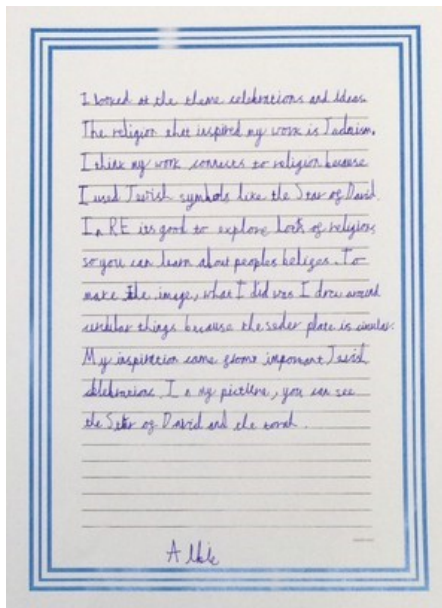 I looked at the theme celebrations and ideas.
The religion that inspired my work is Judaism.
I think my work connects to religion because
I used Jewish symbols like the Star of David.
In RE its good to explore lots of religions
so you can learn about peoples beliefes. To
make the image, what I did was I drew around
circular things because the seder plate is circular.
My inspiration came from important Jewish
celebrations. In my picture, you can see
the Star of David and the torah.
Albie